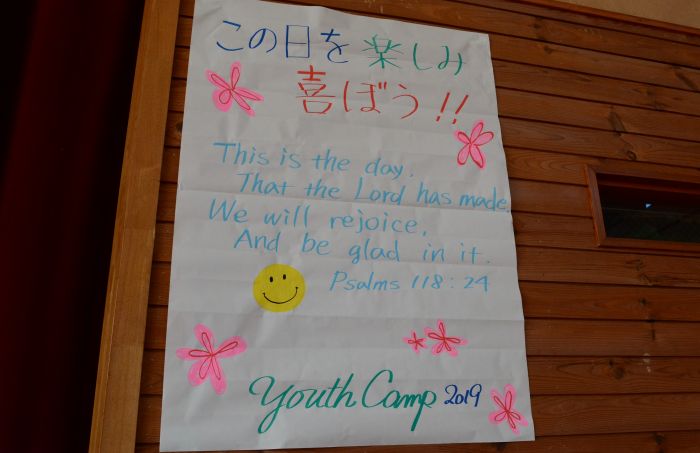 この日を楽しみ
喜ぼう!!
This is the day,
That the Lord has made.
We will rejoice,
And be glad in it.
Psalms 118:24
Youth Camp 2019